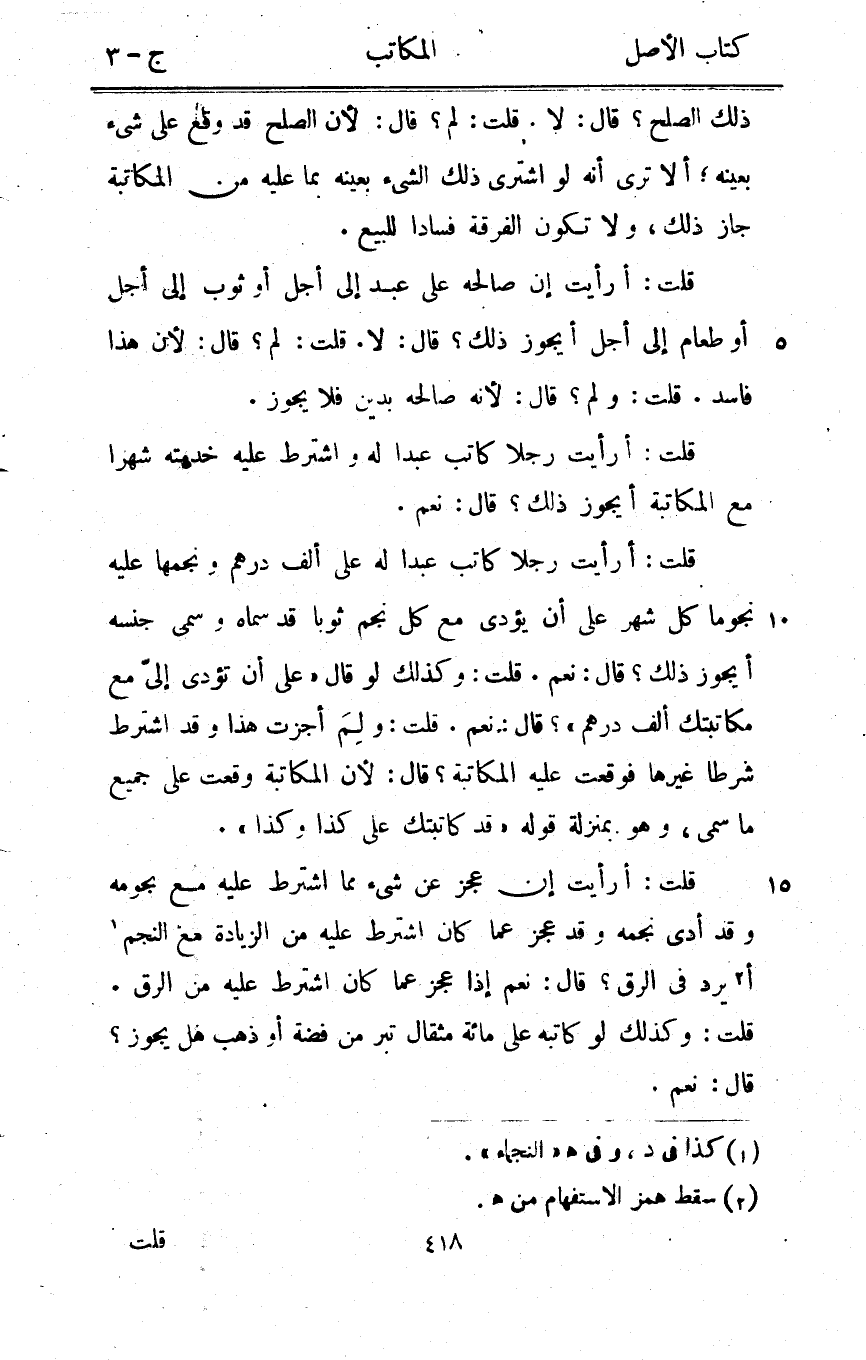 كتاب الأصل المكاتب ج - ٣
ذلك الصلح ؟ قال : لا . قلت : لم ؟ قال : لأن الصلح قد وقع على شىء
بعينه ؛ ألا ترى أنه لو اشترى ذلك الشىء بعينه بما عليه من المكاتبة
جاز ذلك ، و لا تكون الفرقة فسادا للبيع .
قلت : أ رأيت إن صالحه على عبد إلى أجل أو ثوب إلى أجل
٥ أو طعام إلى أجل أ يجوز ذلك ؟ قال : لا . قلت : لم ؟ قال : لأن هذا
فاسد . قلت : و لم ؟ قال : لأنه صالحه بدين فلا يجوز .
قلت : أ رأيت رجلا كاتب عبدا له و اشترط عليه خدمته شهرا
مع المكاتبة أ يجوز ذلك ؟ قال : نعم .
قلت : أ رأيت رجلا كاتب عبدا له على ألف درهم و نجمها عليه
١٠ نجوما كل شهر على أن يؤدى مع كل نجم ثوبا قد سماه و سمى جنسه
أ يجوز ذلك ؟ قال : نعم . قلت : و كذلك لو قال « على أن تؤدى إلىّ مع
مكاتبتك ألف درهم » ؟ قال : نعم . قلت : و لِمَ أجزت هذا و قد اشترط
شرطا غيرها فوقعت عليه المكاتبة ؟ قال : لأن المكاتبة وقعت على جميع
ما سمى ، و هو بمنزلة قوله « قد كاتبتك على كذا و كذا » .
١٥ قلت : أ رأيت إن عجز عن شىء مما اشترط عليه مع نجومه
و قد أدى نجمه و قد عجز عما كان اشترط عليه من الزيادة مع النجم ١
أ٢ يرد فى الرق ؟ قال : نعم إذا عجز عما كان اشترط عليه من الرق .
قلت : و كذلك لو كاتبه على مائة مثقال تبر من فضة أو ذهب هل يجوز ؟
قال : نعم .
(١) كذا فى د ، و فى ه « النجماء » .
(٢) سقط همز الاستفهام من ه .
٤١٨ قلت